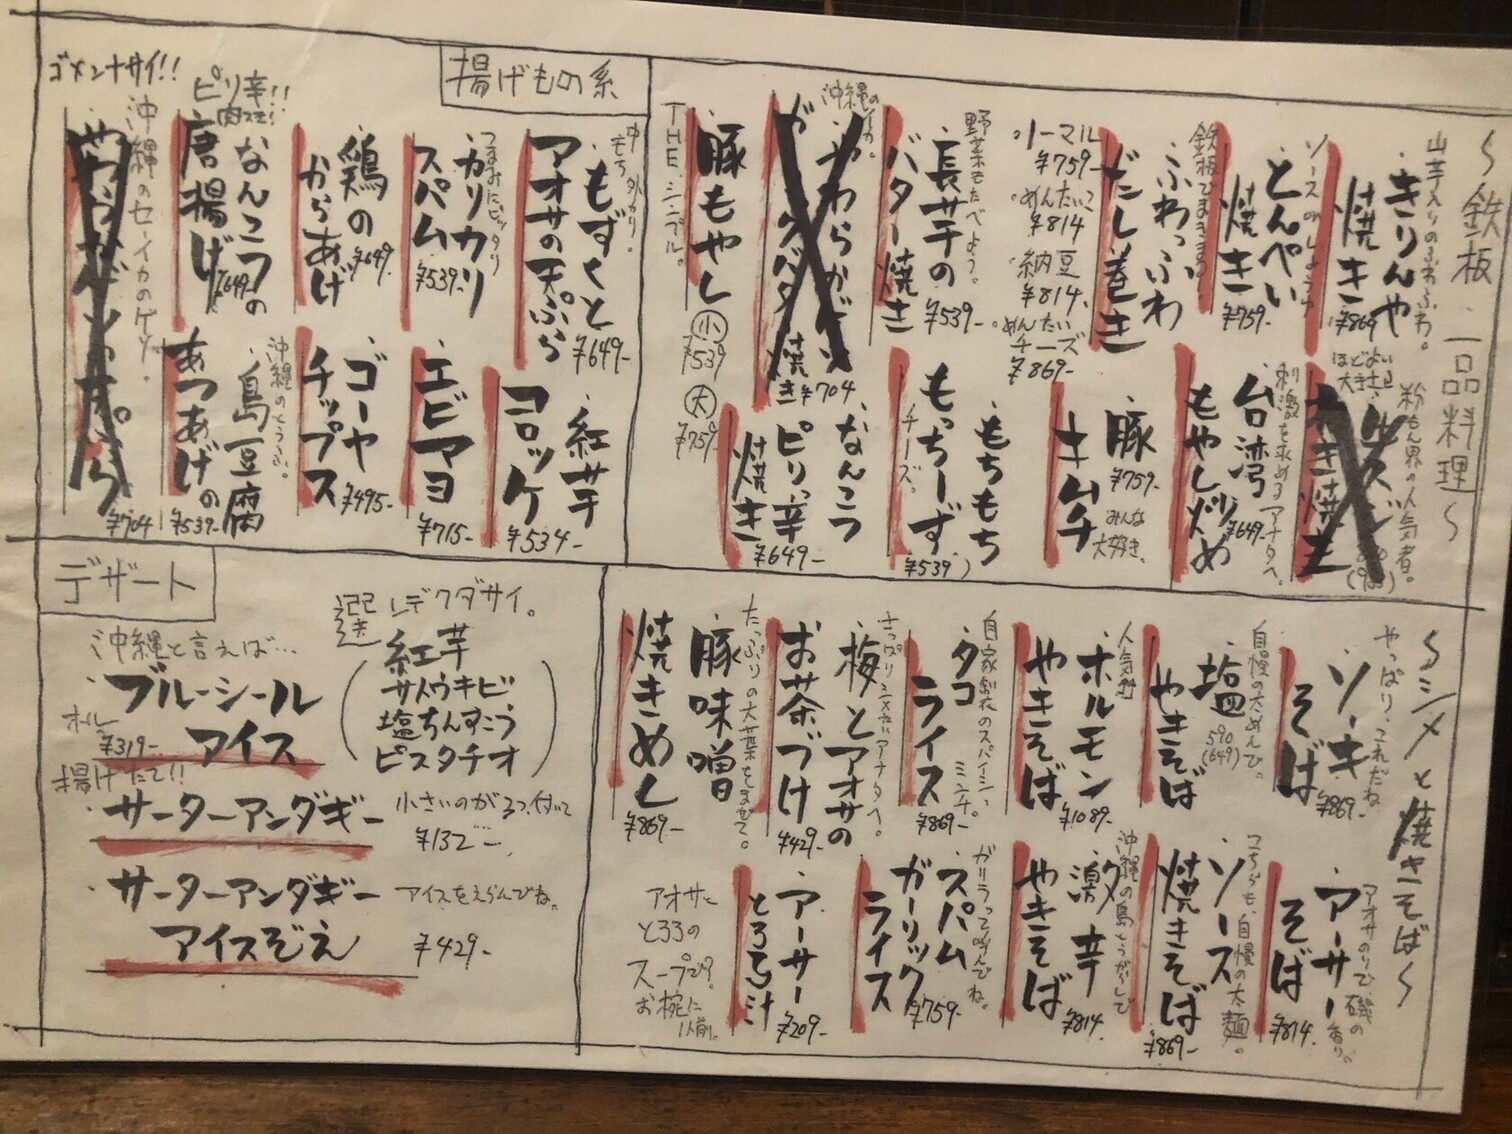 〜鉄板 一品料理〜
山芋入りのふわふわ。
・きりんや
焼き
¥869
ソースの
・とんぺい
焼き
¥759-
鉄板でまきます。
・ふわっふわ
だし巻き
ノーマル
¥759-
めんたいこ
¥814
納豆
¥814.
めんたい
チーズ
¥869-
野菜もたべよう。
・長芋の
バター焼き
¥539-
沖縄の
・やわらか
焼き
¥704
THE.シンプル。
・豚もやし
小
¥539
大
¥759-
粉もん界の人気者。
ほどよい
大きさ
焼き
刺激を求めるアナタへ。
・台湾
もやし炒め
¥649-
・豚
キムチ
¥759-
みんな
大好き、
・もちもち
もっちーず
チーズ。
¥539
・なんこつ
ピリ辛
焼き
¥649-
揚げもの系
中もち 外カリ。
・もずくと
アオサの天ぷら
¥649-
つまみにピッタリ
・カリカリ
スパム
¥539-
・鶏の
からあげ
¥649-
ピリ辛!!
・なんこつの
唐揚げ
¥649-
ゴメンナサイ!!
沖縄のセーイカのゲソ.
¥704
・紅芋
コロッケ
¥534-
・エビマヨ
¥715-
・ゴーヤ
チップス
¥495-
沖縄のとうふ。
・島豆腐
あつあげの
¥539-
〜シメと焼きそば〜
やっぱり、これだね
・ソーキ
そば
¥869-
自慢の太めんで。
・塩
やきそば
590
(649)
人気
・ホルモン
やきそば
¥1089-
自家製のスパイシーミンチ。
・タコ
ライス
¥869-
さっぱりシメたいアナタへ。
・梅とアオサの
お茶づけ
¥429-
たっぷりの大葉をまぜて。
・豚味噌
焼きめし
¥869-
アオサのりで、磯の香り。
・アーサー
そば
¥814-
こちらも、自慢の太麺。
・ソース
焼きそば
¥869-
沖縄の島とうがらしで
・激辛
やきそば
¥814.
ガーリって呼んでね。
・スパム
ガーリック
ライス
¥759-
・アーサー
とろろ汁
¥209-
アオサと
とろろの
スープで?
お椀に
1人前。
デザート
沖縄と言えば…
・ブルーシール
アイス
オール
¥319-
選レデクダサイ。
(紅芋
サトウキビ
塩ちんすこう
ピスタチオ)
揚げたて!!
・サーターアンダギー
小さいのが3つ付いて
¥132-
・サーターアンダギー
アイスぞえ
アイスをえらんでね。
¥429-